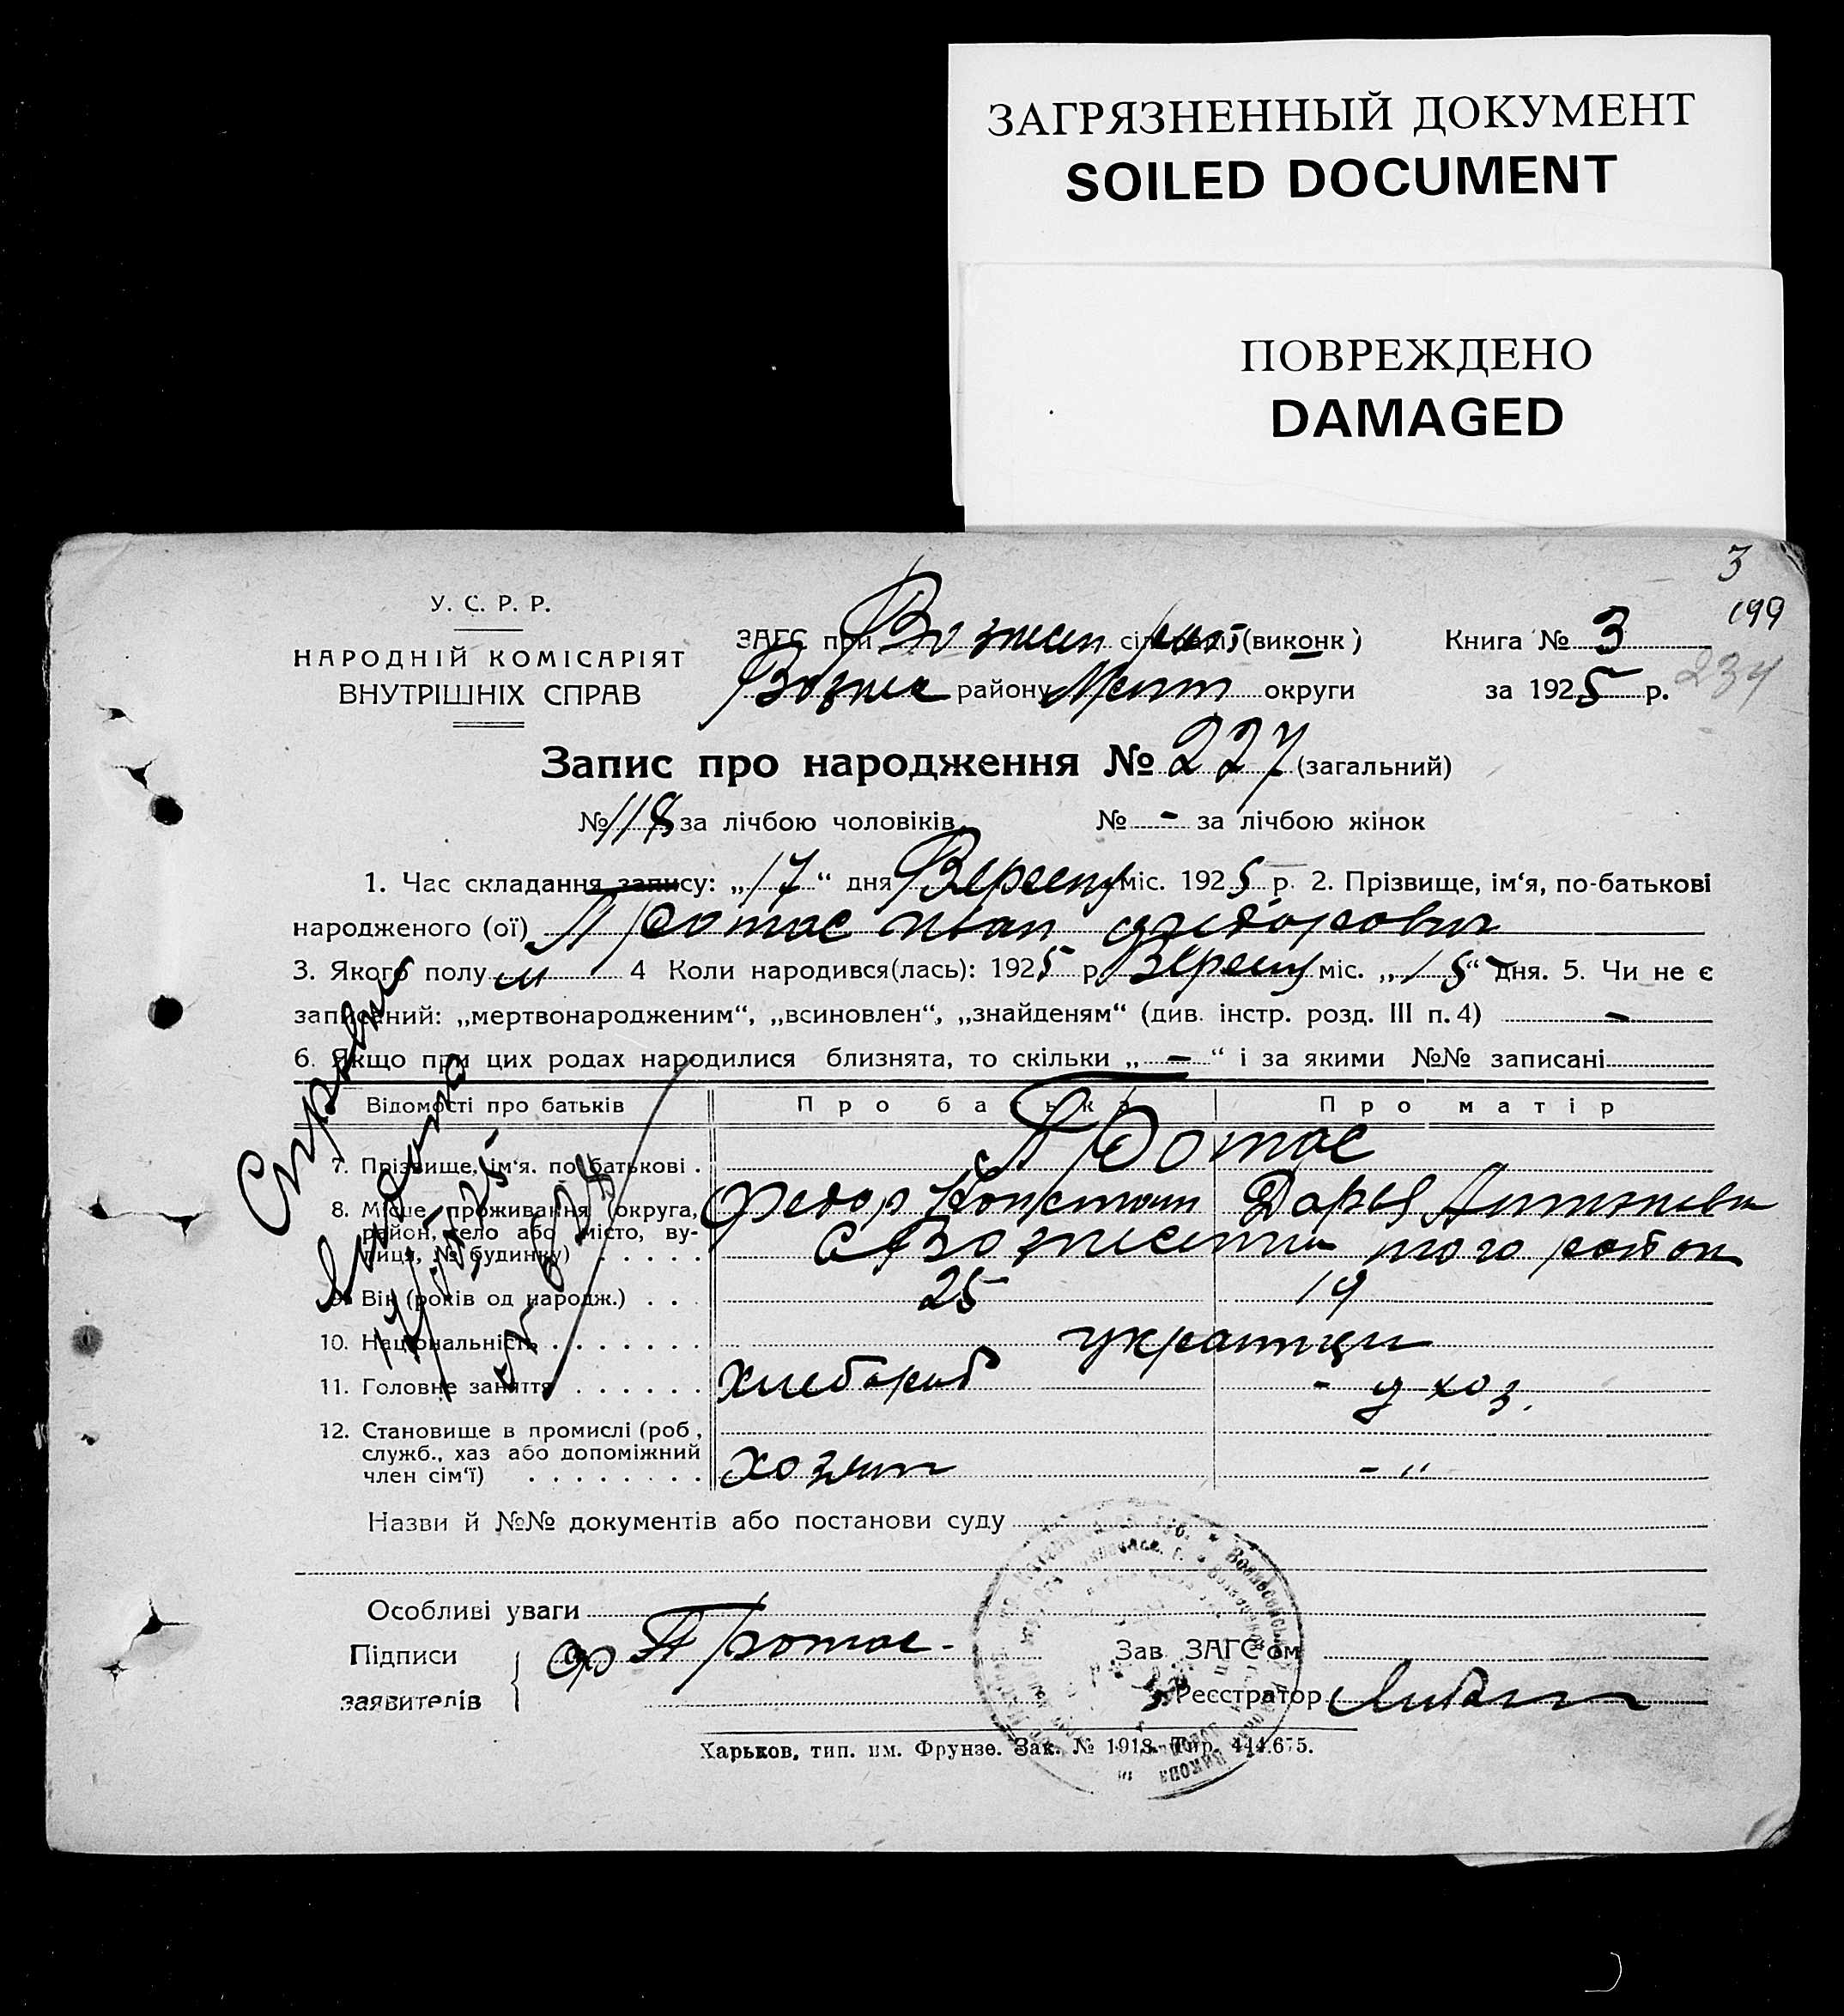 ЗАГРЯЗНЕННЫЙ ДОКУМЕНТ
SOILED DOCUMENT
ПОВРЕЖДЕНО
DAMAGED
3
199
234
У. С. Р. Р.
НАРОДНІЙ КОМІСАРІЯТ
ВНУТРІШНІХ СПРАВ
ЗАГС при Вознесен сільраді (виконк)
Вознес району округи
Книга № 3
за 1925 р.
Запис про народження № 227 (загальний)
№ 118 за лічбою чоловіків № - за лічбою жінок
1. Час складання запису: „17“ дня Вересня міс. 1925 р. 2. Прізвище, ім‘я, по-батькові
народженого (ої) Протас Иван Федорович
3. Якого полу м 4 Коли народився(лась): 1925 р. Вересня міс. „15“ дня. 5. Чи не є
записаний: „мертвонародженим“, „всиновлен“, „знайденям“ (див. інстр. розд. III п. 4) -
6. Якщо при цих родах народилися близнята, то скільки „ - “ і за якими №№ записані
Відомості про батьків Про батька Про матір
7. Прізвище, ім‘я. по батькові . Протас
8. Місце проживання (округа, Федор Констан Дарья Антоновн
район, село або місто, ву-
лиця, № будинку) . . . . . с Вознесенка того района
9. Вік (років од народж.) . . . 25 19
10. Національність . . . . . . . украинци
11. Головне заняття . . . . . . Хлебороб - д хоз.
12. Становище в промислі (роб,
служб., хаз або допоміжний
член сім‘ї) . . . . . . . . Хозяин - "
Справка
Назви й №№ документів або постанови суду
Особливі уваги
Підписи
заявителів
Протас
Зав. ЗАГС‘ом
Реєстратор
Харьков, тип. им. Фрунзе. Зак. № 1918. Тир. 444.675.